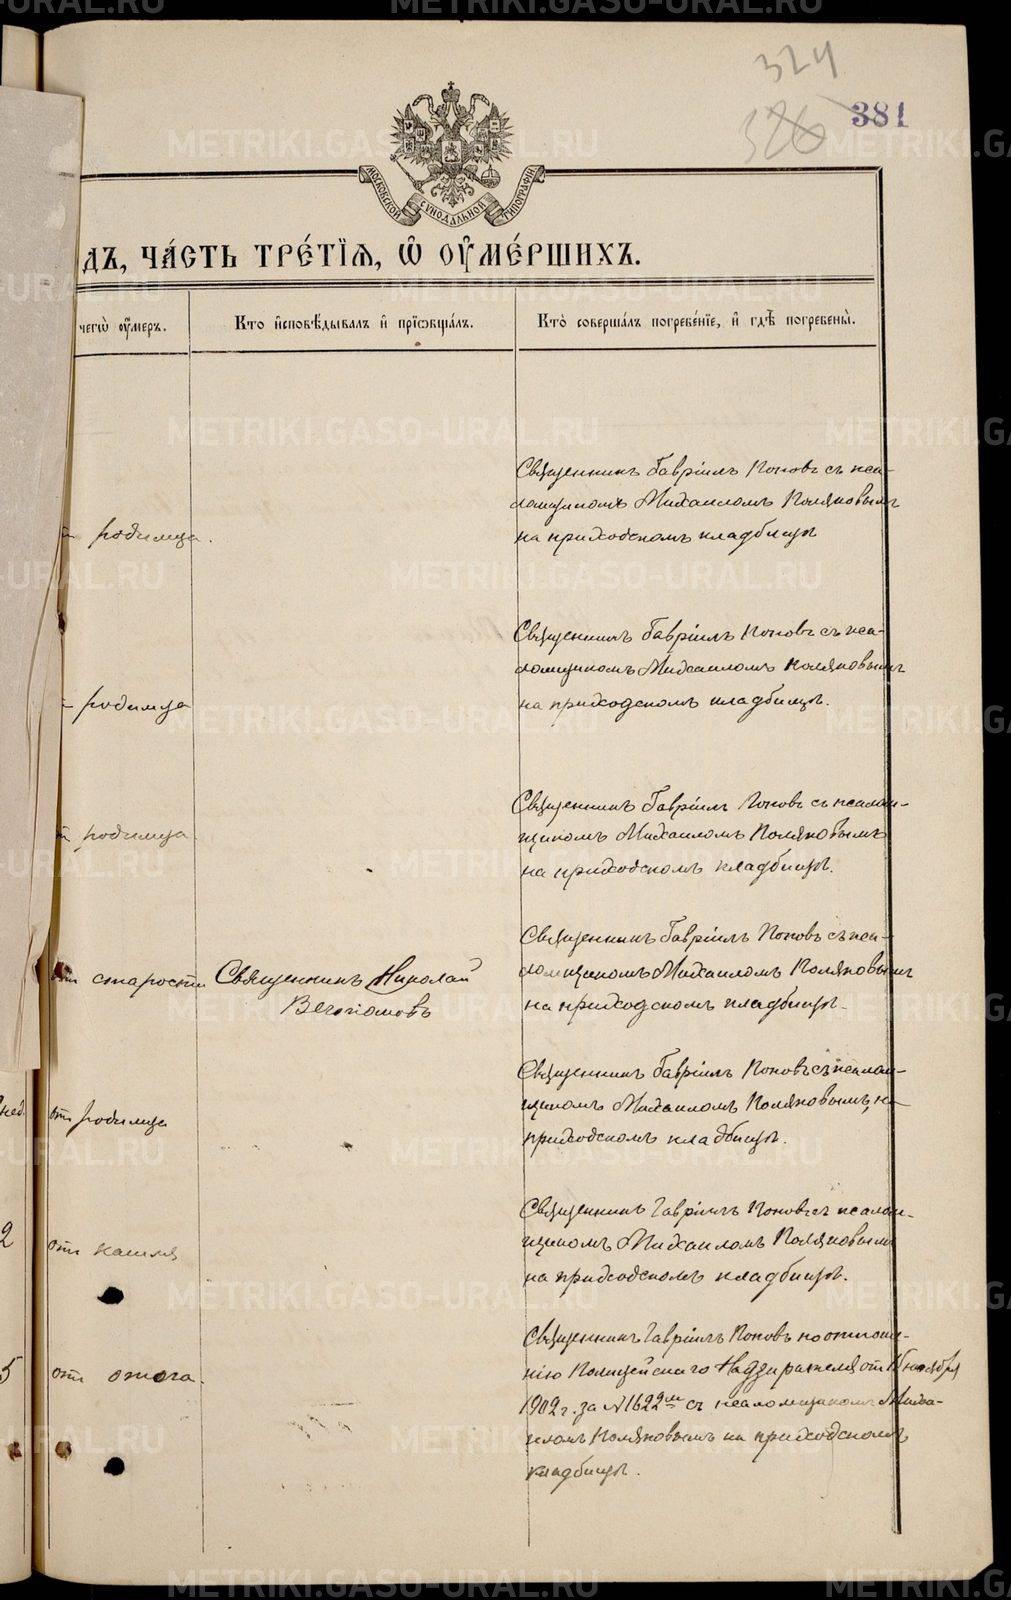 324
326
381
МОСКОВСКОЙ СѴНОДАЛЬНОЙ ТИПОГРАФІИ
дъ, ча́сть тре́тїѧ, ѡ҆ ᲂу҆ме́ршихъ.
чегѡ̀ ᲂу҆́меръ.
Кто̀ и҆сповѣ́дывалъ и҆ прїѡбща́лъ.
Кто̀ соверша́лъ погребе́нїе, и҆ гдѣ̀ погребены̀.
родимца.
Священникъ Гавріилъ Поповъ съ пса-
ломщикомъ Михаиломъ Поляковымъ
на приходскомъ кладбищѣ
родимца
Священникъ Гавріилъ Поповъ съ пса-
ломщикомъ Михаиломъ Поляковымъ
на приходскомъ кладбищѣ.
родимца.
Священникъ Гавріилъ Поповъ съ псалом-
щикомъ Михаиломъ Поляковымъ
на приходскомъ кладбищѣ.
отъ старости
Священникъ Николай
Священникъ Гавріилъ Поповъ съ пса-
ломщикомъ Михаиломъ Поляковымъ
на приходскомъ кладбищѣ.
нед.
отъ родимца
Священникъ Гавріилъ Поповъ съ псалом-
щикомъ Михаиломъ Поляковымъ, на
приходскомъ кладбищѣ.
2
отъ кашля
Священникъ Гавріилъ Поповъ съ псалом-
щикомъ Михаиломъ Поляковымъ
на приходскомъ кладбищѣ.
5
отъ ожога.
Священникъ Гавріилъ Поповъ по отноше-
нію Полицейскаго Надзирателя от 15 ноября
1902 г. за № 1622м съ псаломщикомъ Миха-
иломъ Поляковымъ на приходскомъ
кладбищѣ.
METRIKI.GASO-URAL.RU